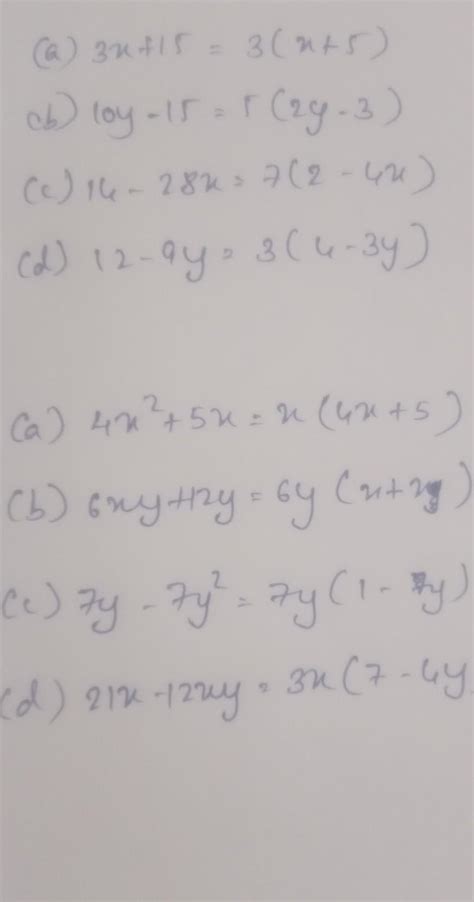 (a) 3x+15 = 3(x+5)
(b) 10y-15 = 5(2y-3)
(c) 14 - 28x = 7(2 - 4x)
(d) 12-9y = 3(4-3y)
(a) 4x²+5x = x(4x+5)
(b) 6xy+12y = 6y(x+
(c) 7y - 7y² = 7y(1 - y)
(d) 21x-12xy = 3x(7-4y